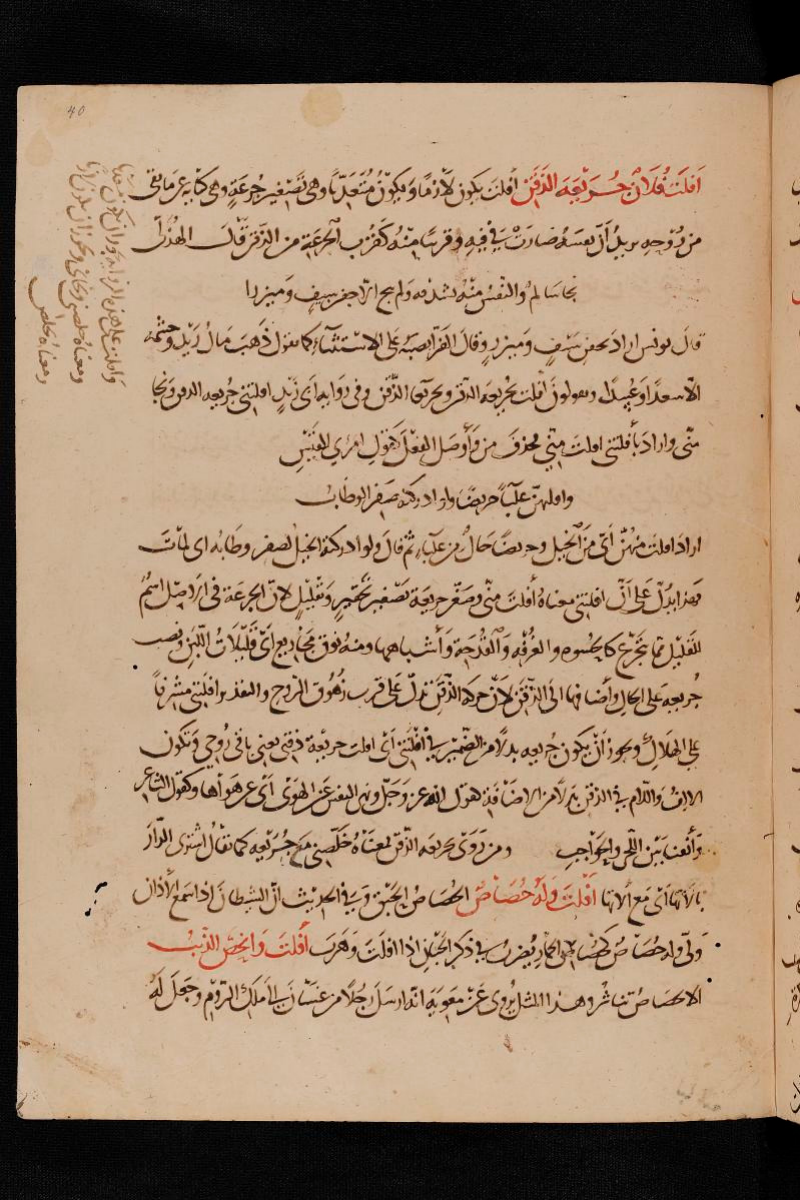 40
أَفْلَتَ فُلَانٌ جُرَيْعَةَ الذَّقَنِ أفلتَ يكون لازمًا وَيكونُ مُتَعَدِّيًا وهى تَصْغير جُرعَةٍ وهى كنَايه عمّا بقى
من رُوحِه يريدُ أنّ نفسَه صَارَتْ فى فِيهِ وقريبًا مِنْهُ كَقُرْبِ الجرعَةِ من الذَّقن قَالَ الهُذَلى
نجا سَالمٌ والنفسُ مِنْهُ بشدقه وَلم ينج الا جفن سيفٍ وَميزرا
قالَ يونس اراد بجفن سَيْفٍ وَميزرٍ وقالَ الفرّا نصبَه عَلى الاسْتثنَاءِ كما تقول ذَهَبَ مَالُ زَيْدٍ وحشمُه
الّا سعدًا وَعُبيدًا ويقولونَ أفلت بجُريعَة الذقن وبجريعاء الذَّقن وفى روَايه أبى زَيْدٍ افلتنى جُريعه الذقن ونجا
منّى وارادَ بأفلتنى افلتَ مِنّى فحذفَ من وَأوصَلَ الفعْلَ كَقولِ امرئ القَيْسِ
وافلتهنّ عِلباءٌ جريضًا ولو ادركنه صَفِر الوطَابُ
ارادَ افلتَ منْهُنّ أىْ مِنَ الخيل وجريضًا حَالٌ من علباءٍ ثم قالَ ولو ادركته الخيلُ لصفر وطَابُه اى لماتَ
فهَذا يدُلّ عَلى أنّ افلتنى معناهُ أفلتَ منّى وصَغّر جريعَة تصْغير تحْقيرٍ وتَقْليلٍ لانّ الجرعَة فى الاصْل اسْمٌ
للقَليْلِ ممّا يتجرّع كالحُسوة والغُرْفة وَالقُدحَة وَأشباهها ومنهُ نوقٌ مجَاريع أىْ قَليْلَاتُ اللّبَنِ ونصب
جُريعه عَلى الحال وأضافها الى الذّقَن لأنّ حركة الذّقَن تدلّ عَلى قرب زهُوق الرّوح والتقدير افلتنى مشرفًا
على الهلَاكِ ويجوز انْ يكونَ جُريعه بدلًا من الضّمير فى افلتنى أىْ افلت جريعَة ذقنى يعنى باقى رُوحِى وَتكون
الالِفُ واللّام فى الذقن بَدلًا من الاضَافَة كقول الله عز وَجَلّ ونهى النفس عَنِ الهوَى أىْ عن هَوَاها وكقول الشاعر
وَآنُفنا بَيْنَ اللّحى والحَواجبِ ومن رَوَى بجريعه الذّقن فمعنَاهُ خَلّصنى مع جُرَيعه كما يُقَالُ اشترى الدّارَ
بآلاتِها أىْ مَع آلاتِها أَفْلَتَ وَلَهُ حُصَاصٌ الحُصَاصُ الحَبَق وَفى الحديْث انّ الشيطانَ اذا سَمعَ الأذان
وَلّى وله حُصَاصٌ كحُصَاص الحِمَار يُضرب فى ذكر الجبَانِ اذا افلتَ وَهَرَبَ أَفْلَتَ وَانحَصَّ الذَّنَبُ
الانحصَاصُ تناثرٌ وهذا المثلُ يُروى عَنْ معَوية انّه ارسَلَ رَجُلًا من غسّانَ الى مَلكِ الرّوم وَجَعَلَ لَهُ